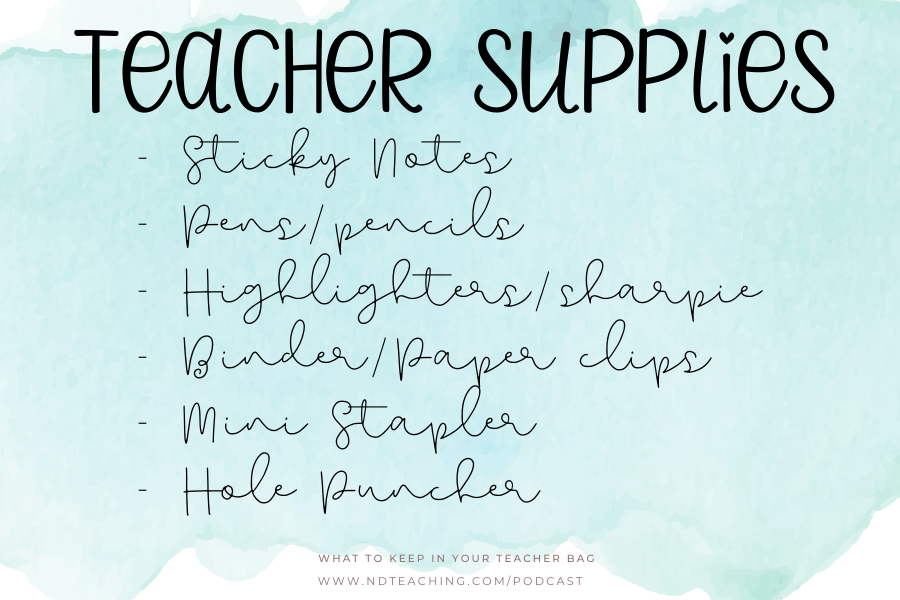 Teacher Supplies
- Sticky Notes
- Pens/pencils
- Highlighters/sharpie
- Binder/Paper clips
- Mini Stapler
- Hole Puncher
WHAT TO KEEP IN YOUR TEACHER BAG
WWW.NDTEACHING.COM/PODCAST